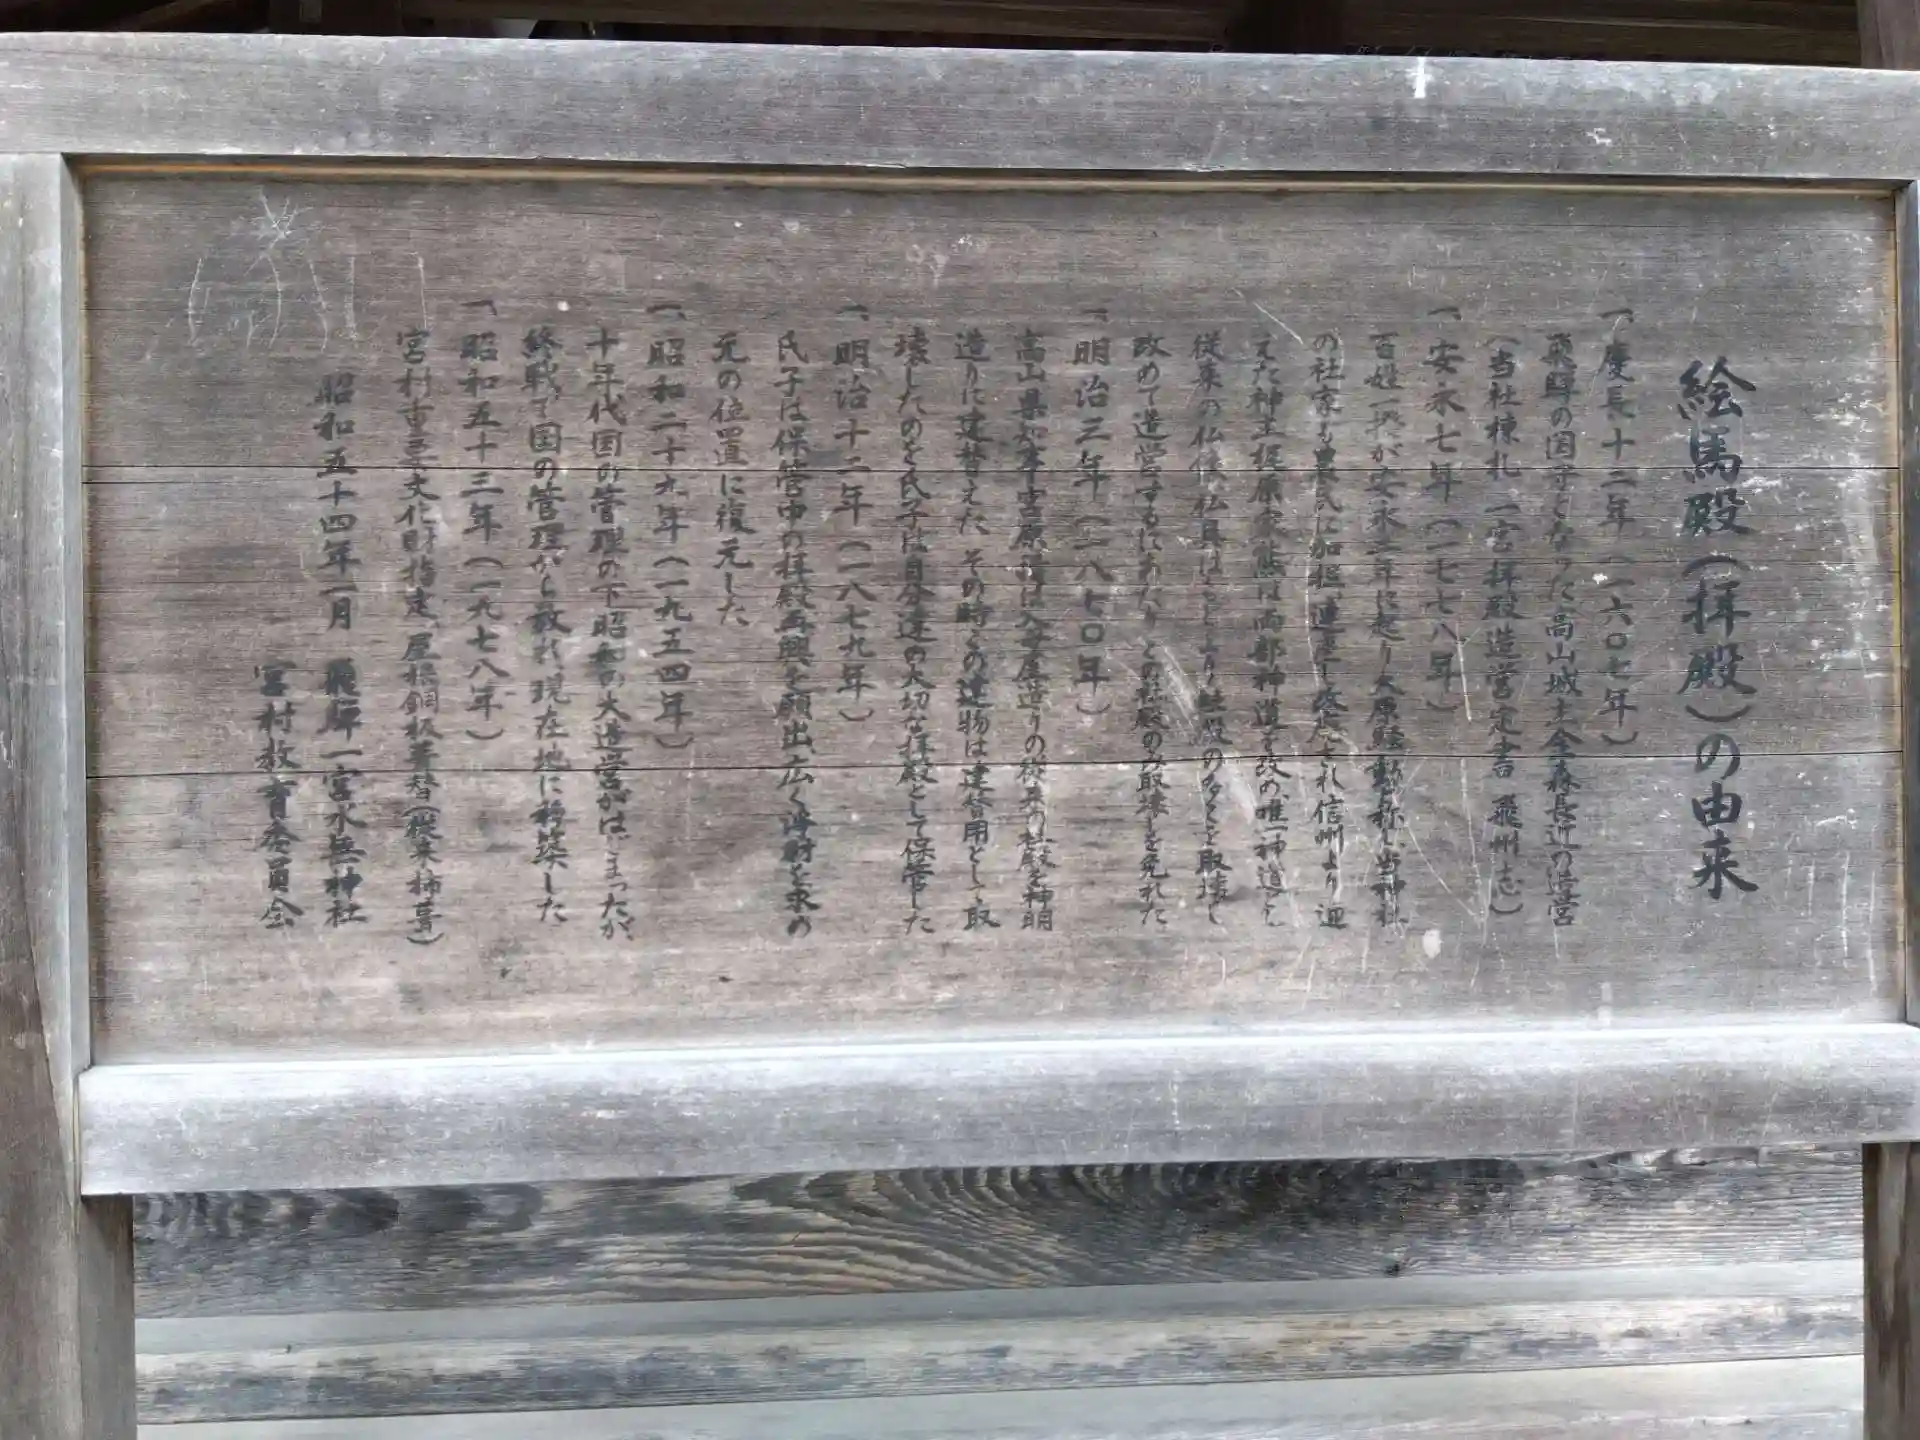 絵馬殿(拝殿)の由来
一、慶長十二年(一六〇七年)
飛騨の国守となった高山城主金森長近の造営
(当社棟札 一宮拝殿造営定書 飛州志)
一、安永七年(一七七八年)
百姓一揆が安永二年に起り大原騒動と称し当神社
の社家も農民に加担、連座し改廃され信州より迎
えた神主梶原家熊は両部神道を改め、唯一神道とし
従来の仏像、仏具はもとより社殿の多くを取壊し
改めて造営するにあたりこの社殿のみ取壊しを免れた
一、明治三年(一八七〇年)
高山県知事宮原積は入母屋造りの従来の社殿を神明
造りに建替えた その時この建物は建替用として取
壊したのを氏子は自分達の大切な拝殿として保管した
一、明治十二年(一八七九年)
氏子は保管中の拝殿再興を願出、広く浄財を求め
元の位置に復元した
一、昭和二十九年(一九五四年)
十年代国の管理の下昭和の大造営がはじまったが、
終戦で国の管理から放れ現在地に移築した
一、昭和五十三年(一九七八年)
宮村重要文化財指定、屋根銅板葺替(従来柿葺)
昭和五十四年一月 飛騨一宮水無神社
宮村教育委員会